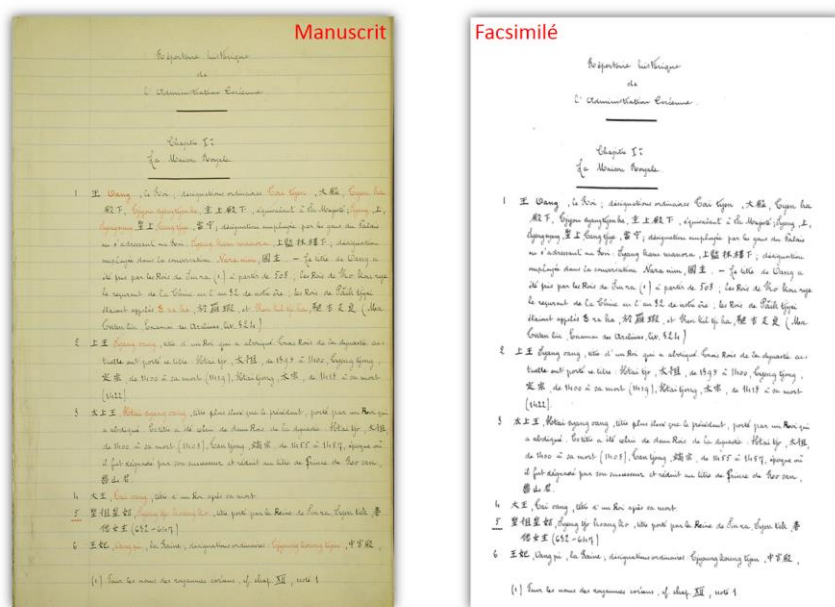 Manuscrit
Répertoire historique
de
l'Administration Coréenne.
Chapitre I:
La Maison Royale
1 王 Oang, le Roi; désignations ordinaires Tai tyen, 大殿, Tyen ha
殿下, 主上殿下, équivalent à Sa Majesté; 上,
聖上, 當宁; désignation employée par les gens du Palais
en s'adressant au Roi. Syang kam manora, désignation
employée dans la conversation Nara nim, 國王. – Le titre de Oang a
été pris par les Rois de Sin ra (1) à partir de 503; les Rois de Ko kou rye
le reçurent de la Chine en l'an 32 de notre ère; les Rois de Päik tjyei
étaient appelés
2 上王 Syang oang, titre d'un Roi qui a abdiqué. Trois Rois de la dynastie ac-
tuelle ont porté ce titre. Htai tjo, 太祖, de 1398 à 1400, Tyeng tjong,
定宗, de 1400 à sa mort (1419), Htai tjong, 太宗, de 1418 à sa mort
(1422).
3 太上王, Htai syang oang, titre plus élevé que le précédent, porté par un Roi qui
a abdiqué. Ce titre a été celui de deux Rois de la dynastie: Htai tjo, 太祖,
de 1400 à sa mort (1408), Tan tjong, 端宗, de 1455 à 1457, époque où
il fut dégradé par son successeur et réduit au titre de Prince de No san,
魯山君.
4 大王, Tai oang, titre d'un Roi après sa mort.
5 titre porté par la Reine de Sin ra, Syen tek, 善
德女王 (632-647)
6 王妃, Oang pi, la Reine; désignations ordinaires: 中宮殿,
(1) Pour les noms des royaumes coréens, cf. chap. XII, note 1
Facsimilé
Répertoire historique
de
l'Administration Coréenne.
Chapitre I:
La Maison Royale
1 王 Oang, le Roi; désignations ordinaires Tai tyen, 大殿, Tyen ha
殿下, 主上殿下, équivalent à Sa Majesté; 上,
聖上, 當宁; désignation employée par les gens du Palais
en s'adressant au Roi. Syang kam manora, désignation
employée dans la conversation Nara nim, 國王. – Le titre de Oang a
été pris par les Rois de Sin ra (1) à partir de 503; les Rois de Ko kou rye
le reçurent de la Chine en l'an 32 de notre ère; les Rois de Päik tjyei
étaient appelés
2 上王 Syang oang, titre d'un Roi qui a abdiqué. Trois Rois de la dynastie ac-
tuelle ont porté ce titre. Htai tjo, 太祖, de 1398 à 1400, Tyeng tjong,
定宗, de 1400 à sa mort (1419), Htai tjong, 太宗, de 1418 à sa mort
(1422).
3 太上王, Htai syang oang, titre plus élevé que le précédent, porté par un Roi qui
a abdiqué. Ce titre a été celui de deux Rois de la dynastie: Htai tjo, 太祖,
de 1400 à sa mort (1408), Tan tjong, 端宗, de 1455 à 1457, époque où
il fut dégradé par son successeur et réduit au titre de Prince de No san,
魯山君.
4 大王, Tai oang, titre d'un Roi après sa mort.
5 titre porté par la Reine de Sin ra, Syen tek, 善
德女王 (632-647)
6 王妃, Oang pi, la Reine; désignations ordinaires: 中宮殿,
(1) Pour les noms des royaumes coréens, cf. chap. XII, note 1